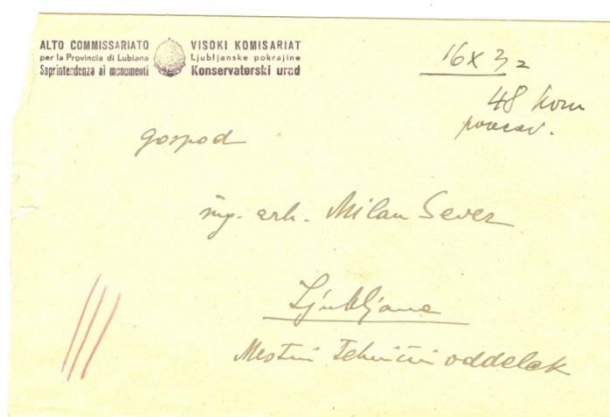 ALTO COMMISSARIATO
per la Provincia di Lubiana
Soprintendenza ai monumenti
VISOKI KOMISARIAT
Ljubljanske pokrajine
Konservatorski urad
16 x 3 =
48 kom
povečav.
gospod
ing. arh. Milan Sever
Ljubljana
Mestni Tehnični oddelek